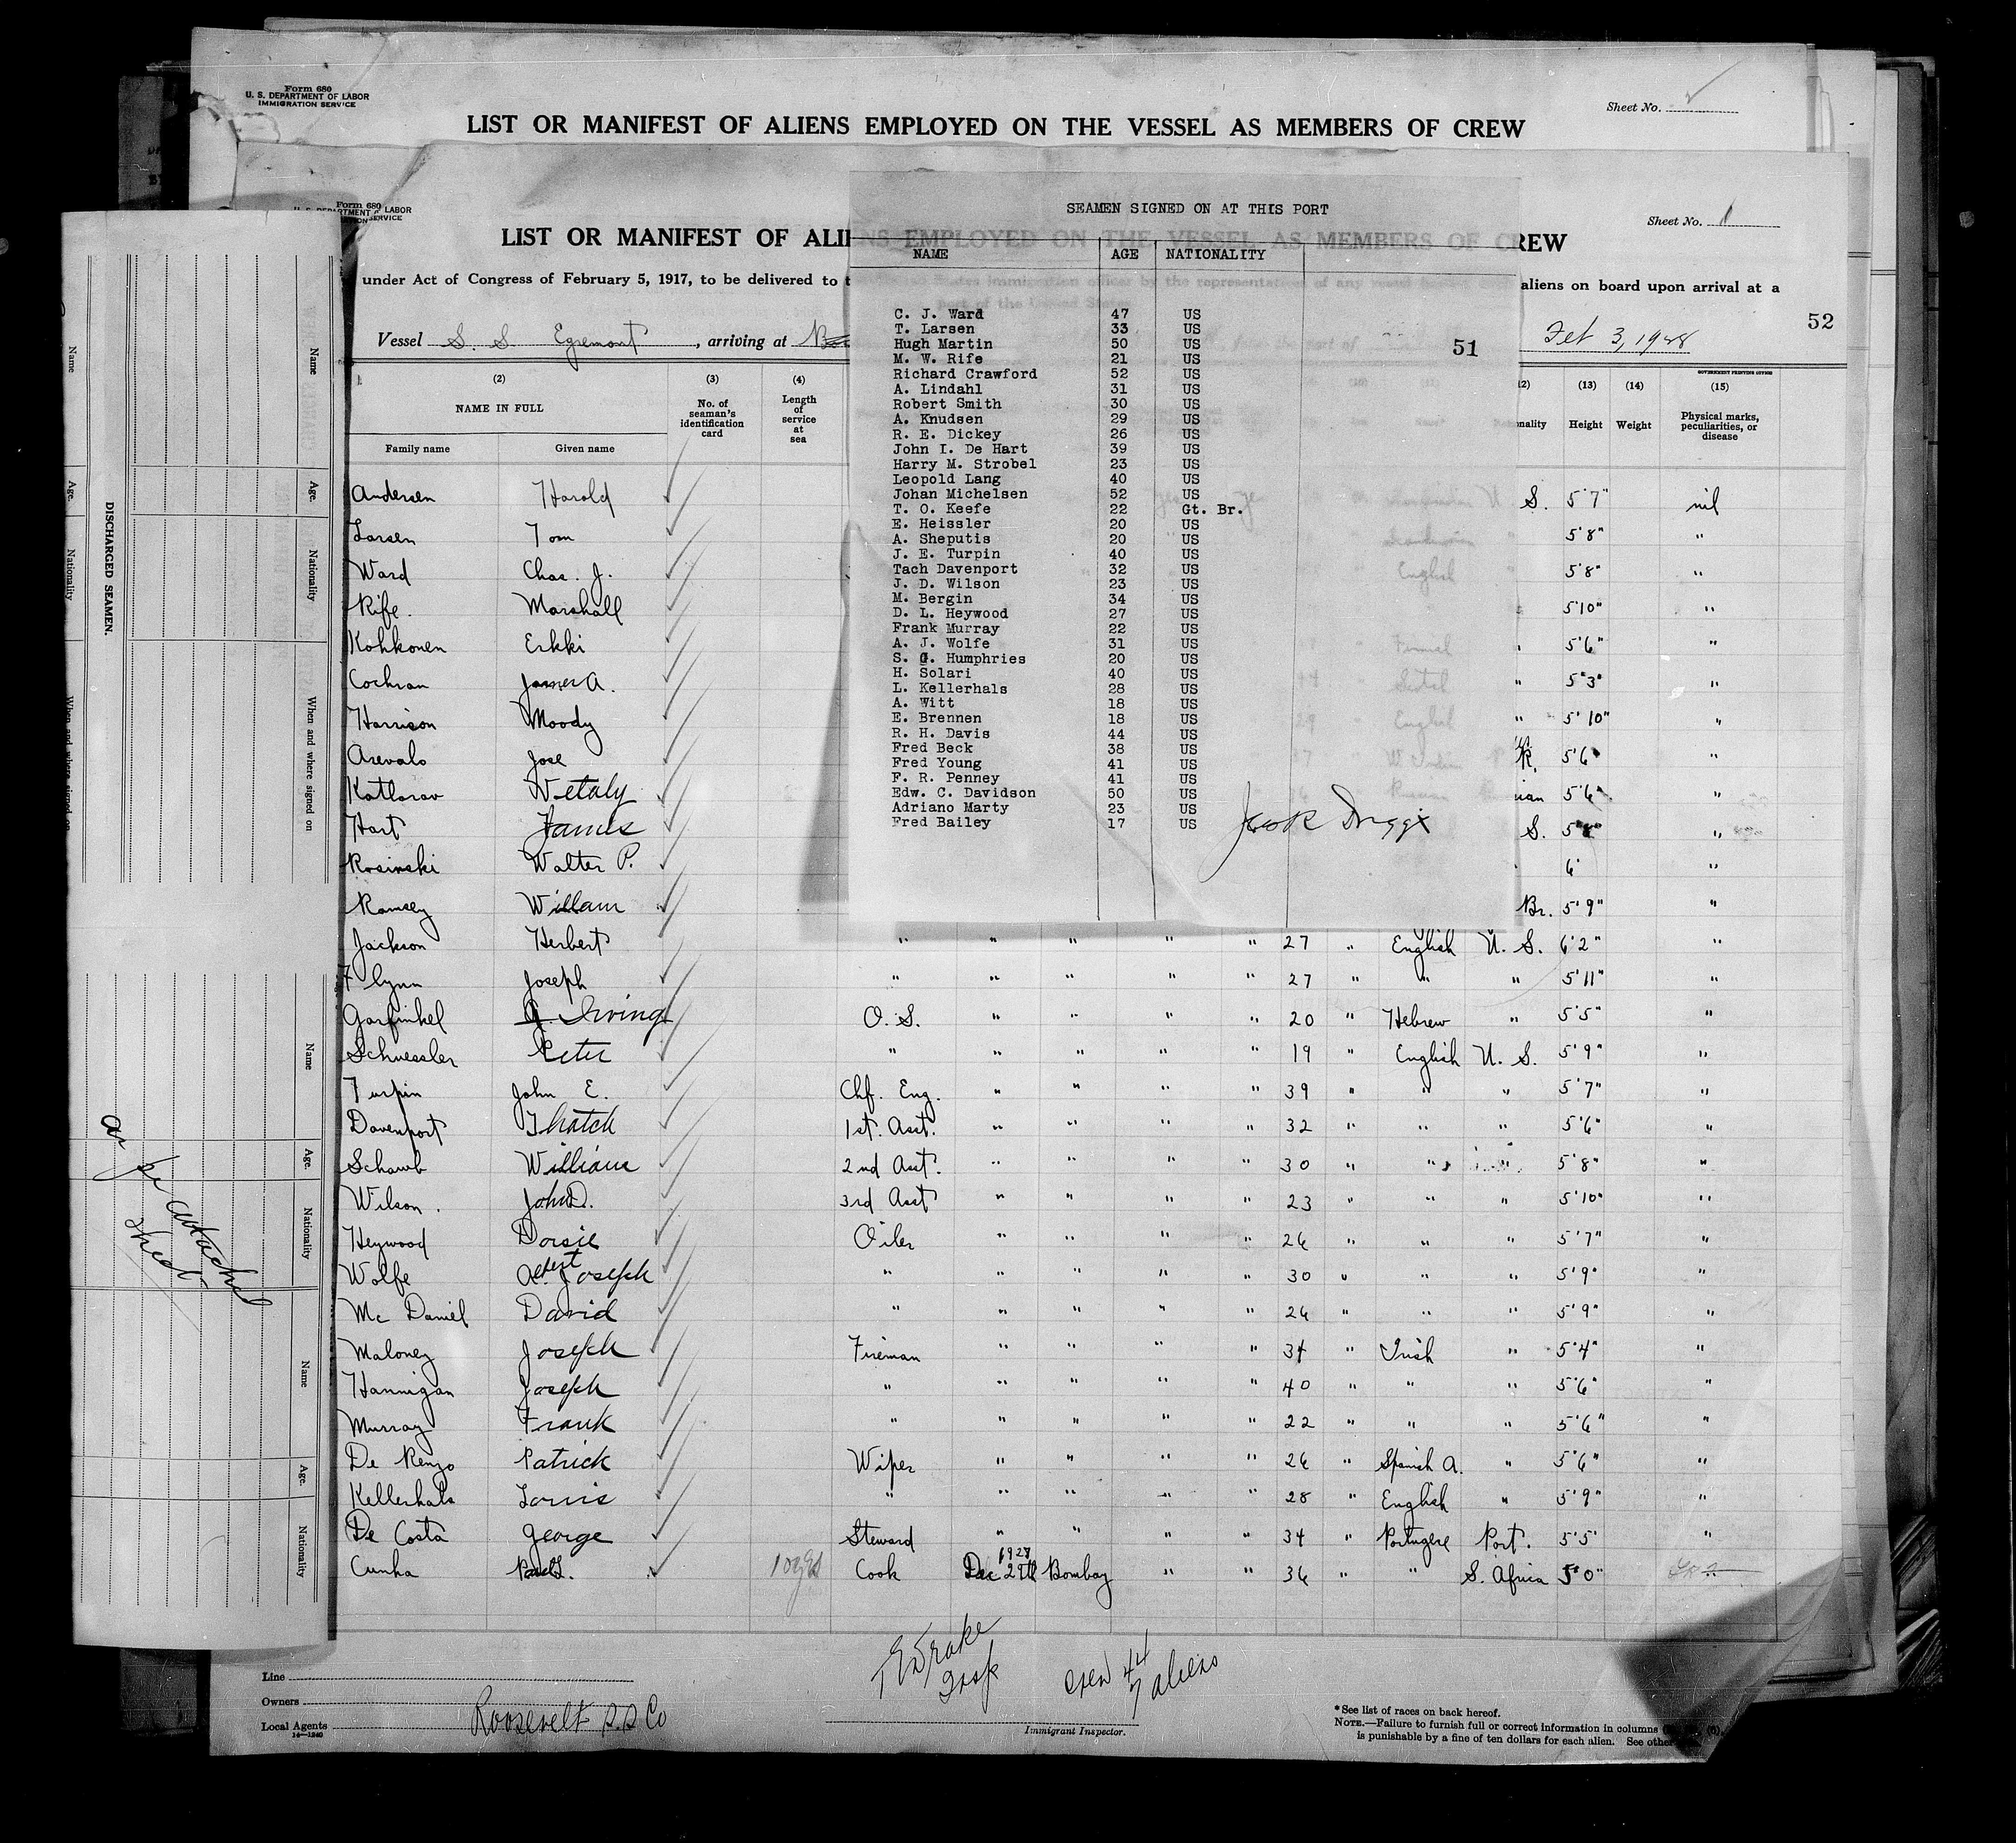 Form 680
U. S. DEPARTMENT OF LABOR
IMMIGRATION SERVICE
Sheet No.
LIST OR MANIFEST OF ALIENS EMPLOYED ON THE VESSEL AS MEMBERS OF CREW
Form 680
LABOR
SERVICE
Sheet No. 1
LIST OR MANIFEST OF ALIENS EMPLOYED ON THE VESSEL AS MEMBERS OF CREW
under Act of Congress of February 5, 1917, to be delivered to
aliens on board upon arrival at a
52
Vessel S. S. Egremont, arriving at
Feb 3, 1928
SEAMEN SIGNED ON AT THIS PORT
NAME AGE NATIONALITY
51
C. J. Ward 47 US
T. Larsen 33 US
Hugh Martin 50 US
M. W. Rife 21 US
Richard Crawford 52 US
A. Lindahl 31 US
Robert Smith 30 US
A. Knudsen 29 US
R. E. Dickey 26 US
John I. De Hart 39 US
Harry M. Strobel 23 US
Leopold Lang 40 US
Johan Michelsen 52 US
T. O. Keefe 22 Gt. Br.
E. Heissler 20 US
A. Sheputis 20 US
J. E. Turpin 40 US
Tach Davenport 32 US
J. D. Wilson 23 US
M. Bergin 34 US
D. L. Heywood 27 US
Frank Murray 22 US
A. J. Wolfe 31 US
S. G. Humphries 20 US
H. Solari 40 US
L. Kellerhals 28 US
A. Witt 18 US
E. Brennen 18 US
R. H. Davis 44 US
Fred Beck 38 US
Fred Young 41 US
F. R. Penney 41 US
Edw. C. Davidson 50 US
Adriano Marty 23 US
Fred Bailey 17 US
GOVERNMENT PRINTING OFFICE
(2) (3) (4) (13) (14) (15)
NAME IN FULL
Family name Given name
No. of seaman's identification card
Length of service at sea
Height Weight
Physical marks, peculiarities, or disease
Andersen Harold S. 5'7" nil
Larsen Tom 5'8" "
Ward Chas. J. 5'8" "
Rife. Marshall 5'10" "
Kohkonen Erkki " 5'6" "
Cochran James A. " 5'3" "
Harrison Moody " 5'10" "
Arevalo Jose R. 5'6" "
Katlarov Vetaly 5'6" "
Hart James S. "
Rosinski Walter P. 6' "
Ramsey William Br. 5'9" "
Jackson Herbert " " " " " 27 " English U. S. 6'2" "
Flynn Joseph " " " " " 27 " " " 5'11" "
Garfinkel Irving O. S. " " " " 20 " Hebrew " 5'5" "
Schuessler Peter " " " " " 19 " English U. S. 5'9" "
Turpin John E. Chf. Eng. " " " " 39 " " " 5'7" "
Davenport Thatch 1st. Asst. " " " " 32 " " " 5'6" "
Schawb William 2nd Asst. " " " " 30 " " 5'8" "
Wilson. John D. 3rd Asst " " " " 23 " " " 5'10" "
Heywood Dorsie Oiler " " " " 26 " " " 5'7" "
Wolfe Albert Joseph " " " " " 30 " " " 5'9" "
Mc Daniel David " " " " " 26 " " " 5'9" "
Maloney Joseph Fireman " " " " 34 " Irish " 5'4" "
Hannigan Joseph " " " " " 40 " " " 5'6" "
Murray Frank " " " " " 22 " " " 5'6" "
De Renzo Patrick Wiper " " " " 26 " Spanish A. " 5'6" "
Kellerhals Louis " " " " " 28 " English " 5'9" "
De Costa George Steward " " " " 34 " Portugese Port. 5'5" "
Cunha 10 yrs Cook Dec 29th 1927 Bombay " " 36 " " S. Africa 5'0"
DISCHARGED SEAMEN.
Name Age. Nationality When and where signed on
Name Age. Nationality
Name Age. Nationality
as per attached sheet
Line
Owners
Local Agents Roosevelt S.S Co
14—1240
Insp
Crew 44
7 aliens
Immigrant Inspector.
*See list of races on back hereof.
NOTE.—Failure to furnish full or correct information in columns (6),
is punishable by a fine of ten dollars for each alien. See other